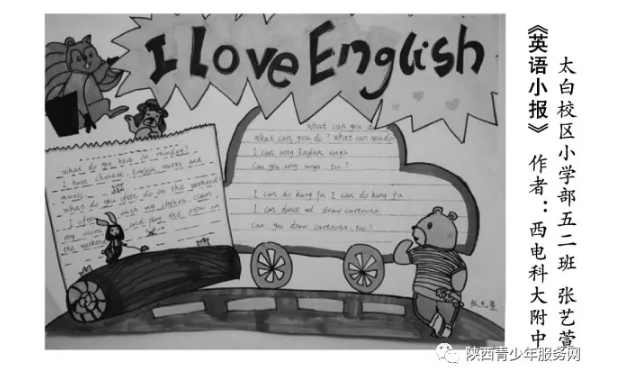 I Love English
What do you have on Mondays?
I have Chinese, English, maths and
music.
What do you often do on the weekend?
I often wash my clothes, clean
my room and
What can you do
What can you do? What can you do
I can sing English songs
Can you sing songs, too?
I can do kung fu I can do kung fu
I can dance and draw cartoons
Can you draw cartoons, too?
张艺萱
《英语小报》 作者：西电科大附中
太白校区小学部五二班 张艺萱
陕西青少年服务网